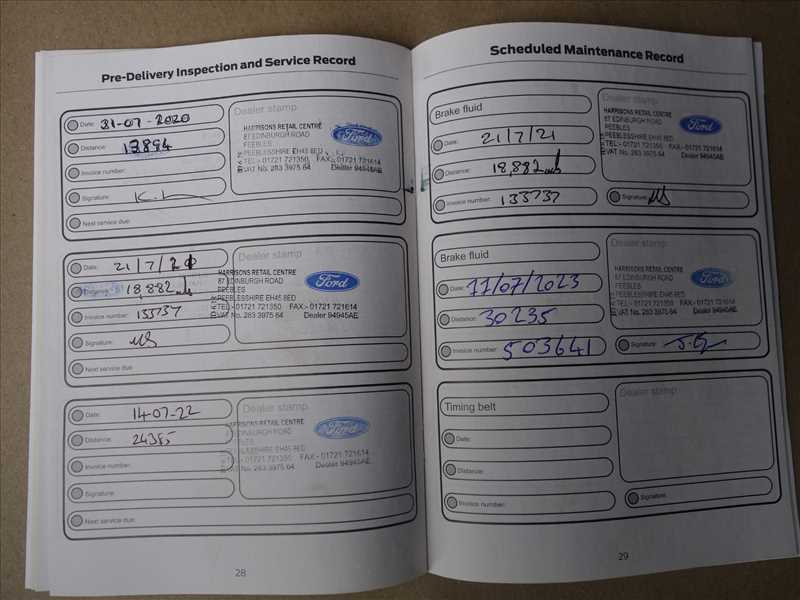 Pre-Delivery Inspection and Service Record
Date: 31-07-2020
Distance: 13894
Invoice number:
Signature:
Next service due:
Dealer stamp
HARRISONS RETAIL CENTRE
87 EDINBURGH ROAD
PEEBLES
PEEBLESSHIRE EH45 8ED
TEL - 01721 721350 FAX - 01721 721614
VAT No. 283 3975 64 Dealer 94945AE
Ford
Date: 21/7/21
18,882
Invoice number: 133737
Signature:
Next service due
Dealer stamp
HARRISONS RETAIL CENTRE
87 EDINBURGH ROAD
PEEBLES
PEEBLESSHIRE EH45 8ED
TEL - 01721 721350 FAX - 01721 721614
VAT No. 283 3975 64 Dealer 94945AE
Ford
Date: 14-07-22
Distance: 24385
Invoice number:
Signature:
Next service due:
Dealer stamp
HARRISONS RETAIL CENTRE
EDINBURGH ROAD
EH45 8ED
TEL - 01721 721350 FAX - 01721 721614
VAT No. 283 3975 64 Dealer 94945AE
Ford
28
Scheduled Maintenance Record
Brake fluid
Date: 21/7/21
Distance: 18,882
Invoice number: 133737
Signature:
Dealer stamp
HARRISONS RETAIL CENTRE
87 EDINBURGH ROAD
PEEBLES
PEEBLESSHIRE EH45 8ED
TEL - 01721 721350 FAX - 01721 721614
VAT No. 283 3975 64 Dealer 94945AE
Ford
Brake fluid
Date: 11/07/2023
Distance: 30235
Invoice number: 503641
Signature:
Dealer stamp
HARRISONS RETAIL CENTRE
87 EDINBURGH ROAD
PEEBLES
PEEBLESSHIRE EH45 8ED
TEL - 01721 721350 FAX - 01721 721614
VAT No. 283 3975 64 Dealer 94945AE
Ford
Timing belt
Date:
Distance:
Invoice number:
Signature:
Dealer stamp
29